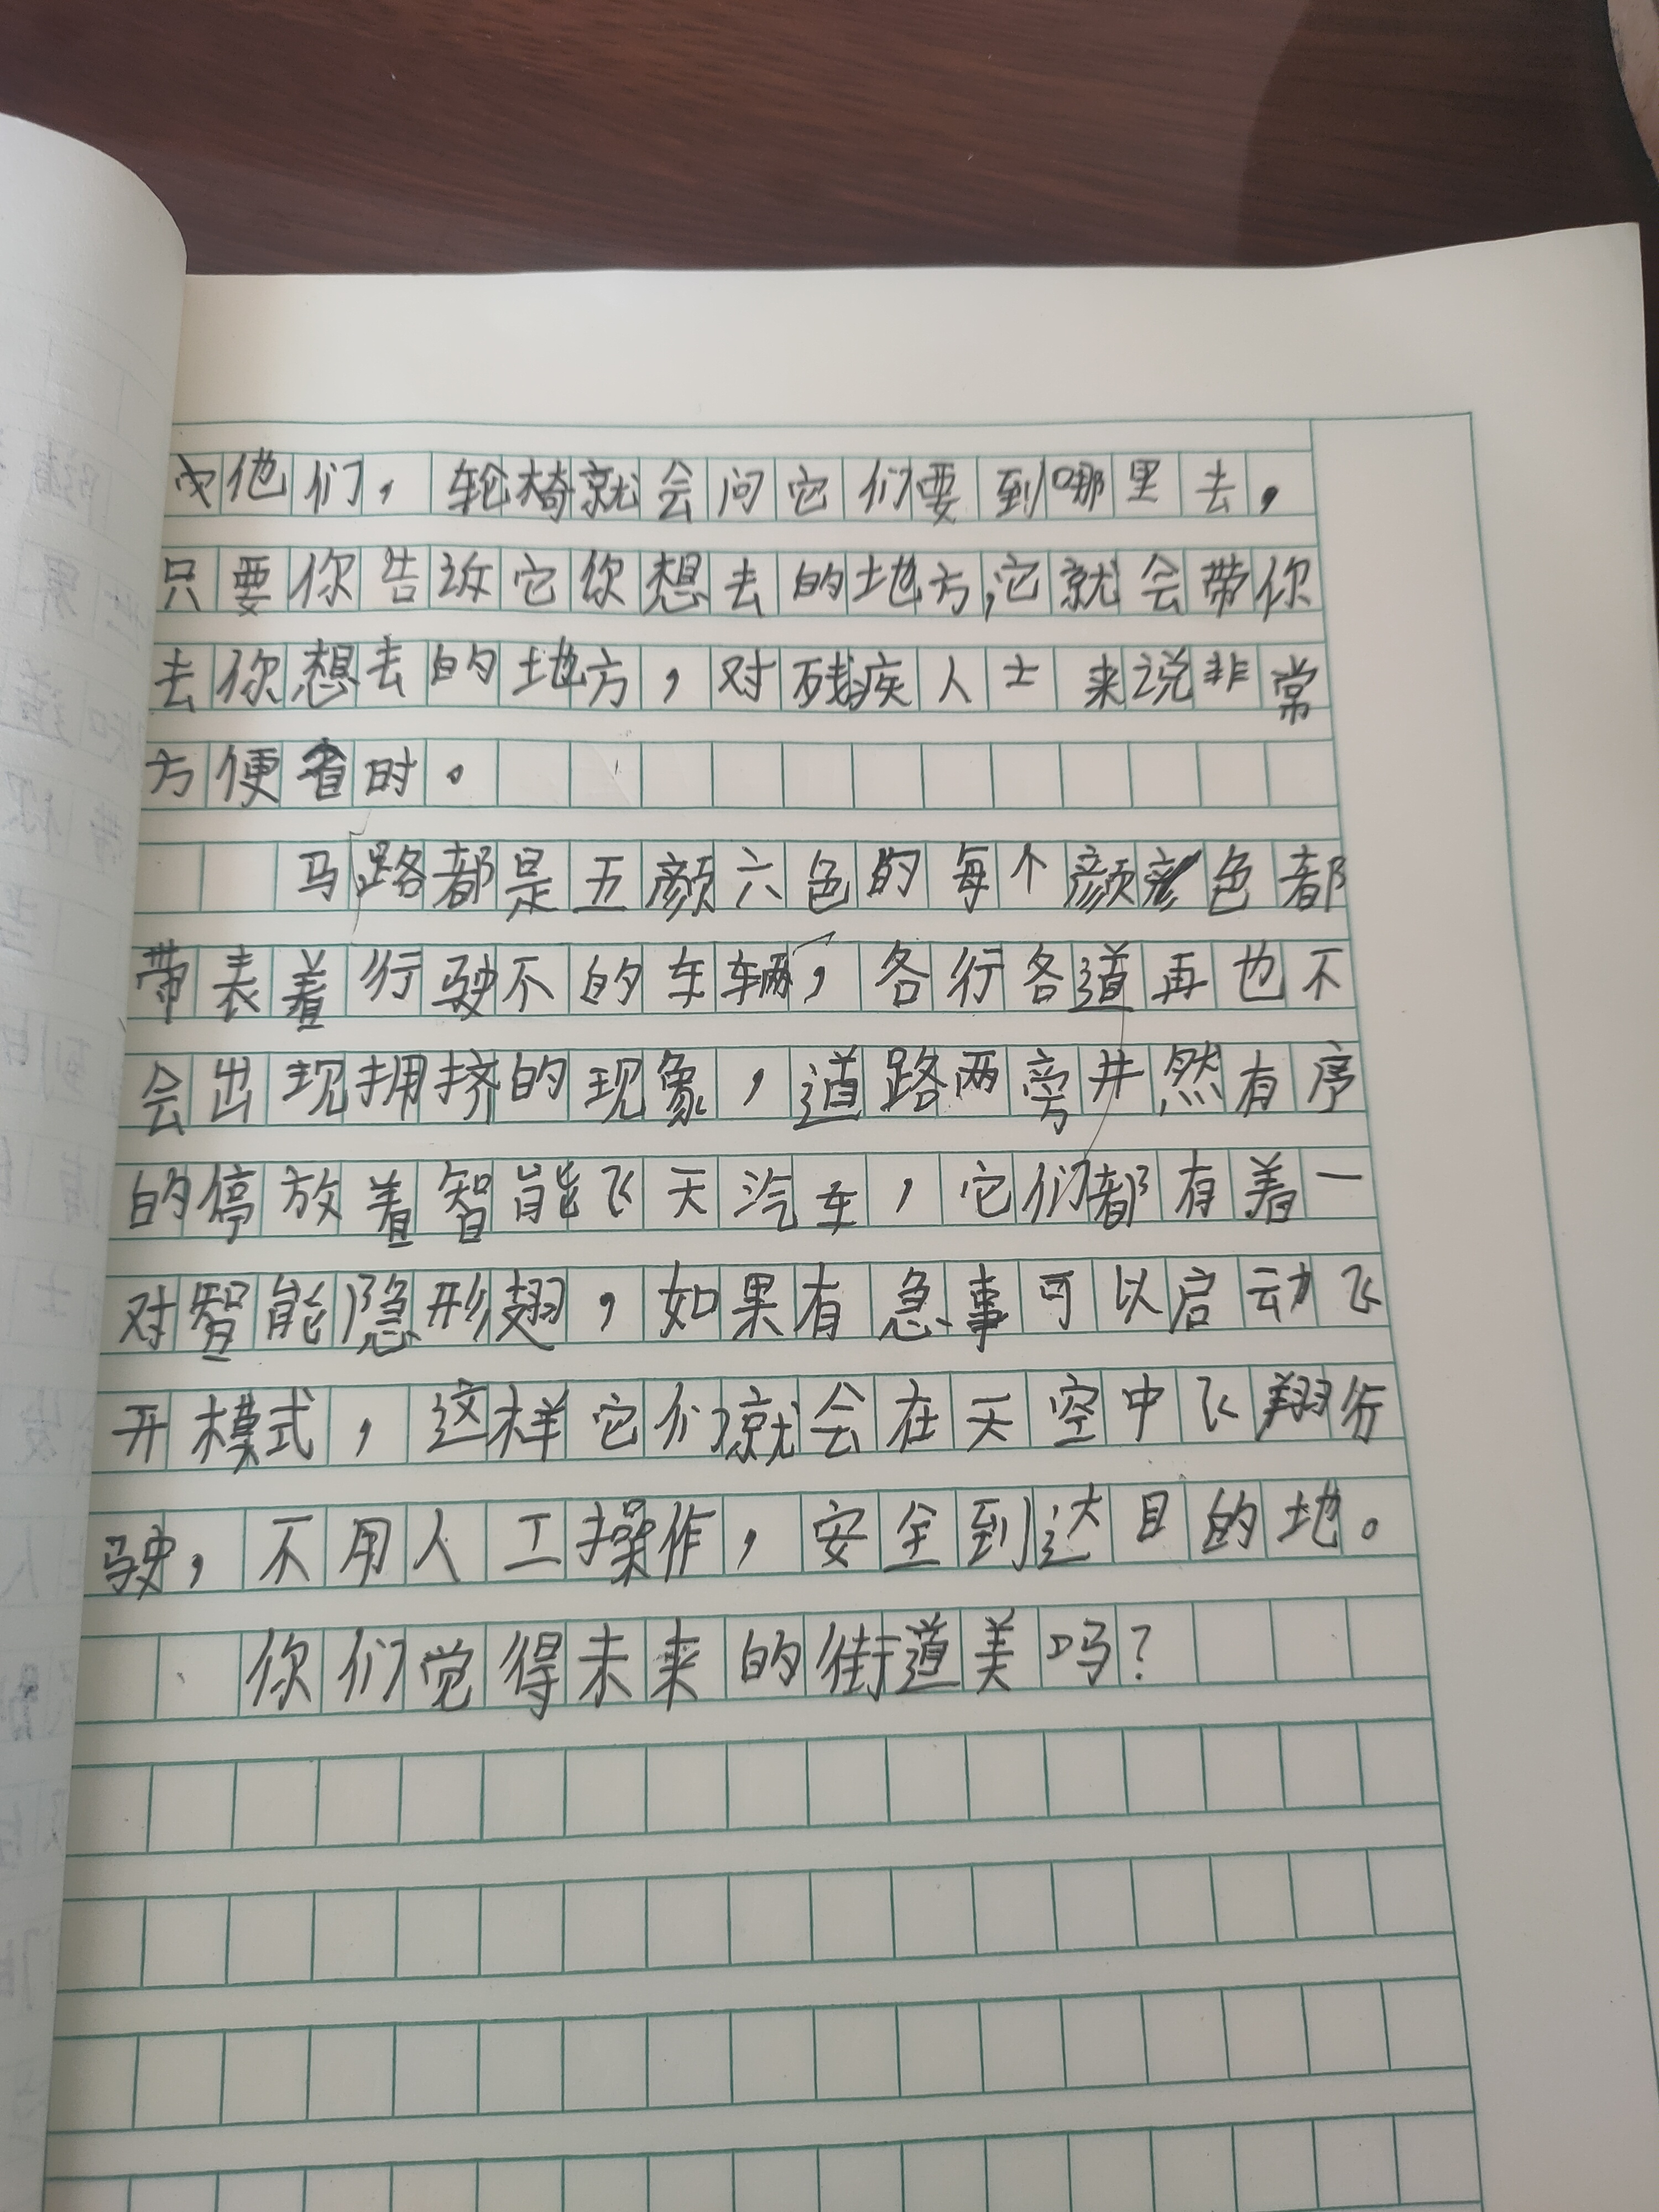 他们，轮椅就会问它们要到哪里去，
只要你告诉它你想去的地方，它就会带你
去你想去的地方，对残疾人士来说非常
方便省时。
马路都是五颜六色的每个颜色都
带表着行驶不的车辆，各行各道再也不
会出现拥挤的现象，道路两旁井然有序
的停放着智能飞天汽车，它们都有着一
对智能隐形翅，如果有急事可以启动飞
开模式，这样它们就会在天空中飞翔行
驶，不用人工操作，安全到达目的地。
你们觉得未来的街道美吗？